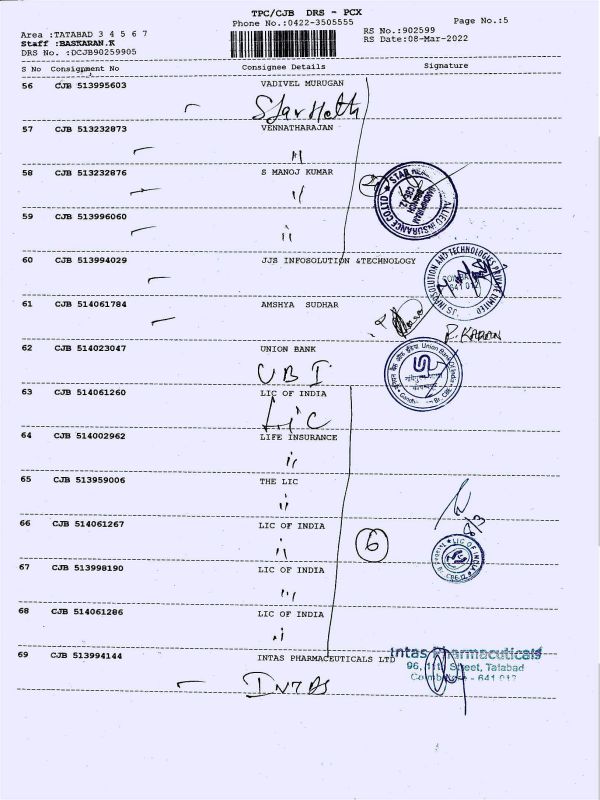 TPC/CJB DRS - PCX
Phone No.:0422-3505555
Page No.:5
Area :TATABAD 3 4 5 6 7
RS No.:902599
Staff :BASKARAN.K
RS Date:08-Mar-2022
DRS No. :DCJB90259905
S No Consignment No Consignee Details Signature
56 CJB 513995603 VADIVEL MURUGAN
Star Helth
57 CJB 513232873 VENNATHARAJAN
58 CJB 513232876 S MANOJ KUMAR
STAR
ALLIED INSURANCE CO LTD
59 CJB 513996060
60 CJB 513994029 JJS INFOSOLUTION &TECHNOLOGY
JJS INFOSOLUTION AND TECHNOLOGIES PRIVATE LIMITED
61 CJB 514061784 AMSHYA SUDHAR
R. KARAN
62 CJB 514023047 UNION BANK
UBI
Union Bank of India
63 CJB 514061260 LIC OF INDIA
LIC
64 CJB 514002962 LIFE INSURANCE
65 CJB 513959006 THE LIC
66 CJB 514061267 LIC OF INDIA
6
8/3
LIC OF INDIA
CBE-12
67 CJB 513998190 LIC OF INDIA
68 CJB 514061286 LIC OF INDIA
69 CJB 513994144 INTAS PHARMACEUTICALS LTD
Intas Pharmaceuticals
96, 11th Street, Tatabad
Coimbatore - 641 012
INTAS